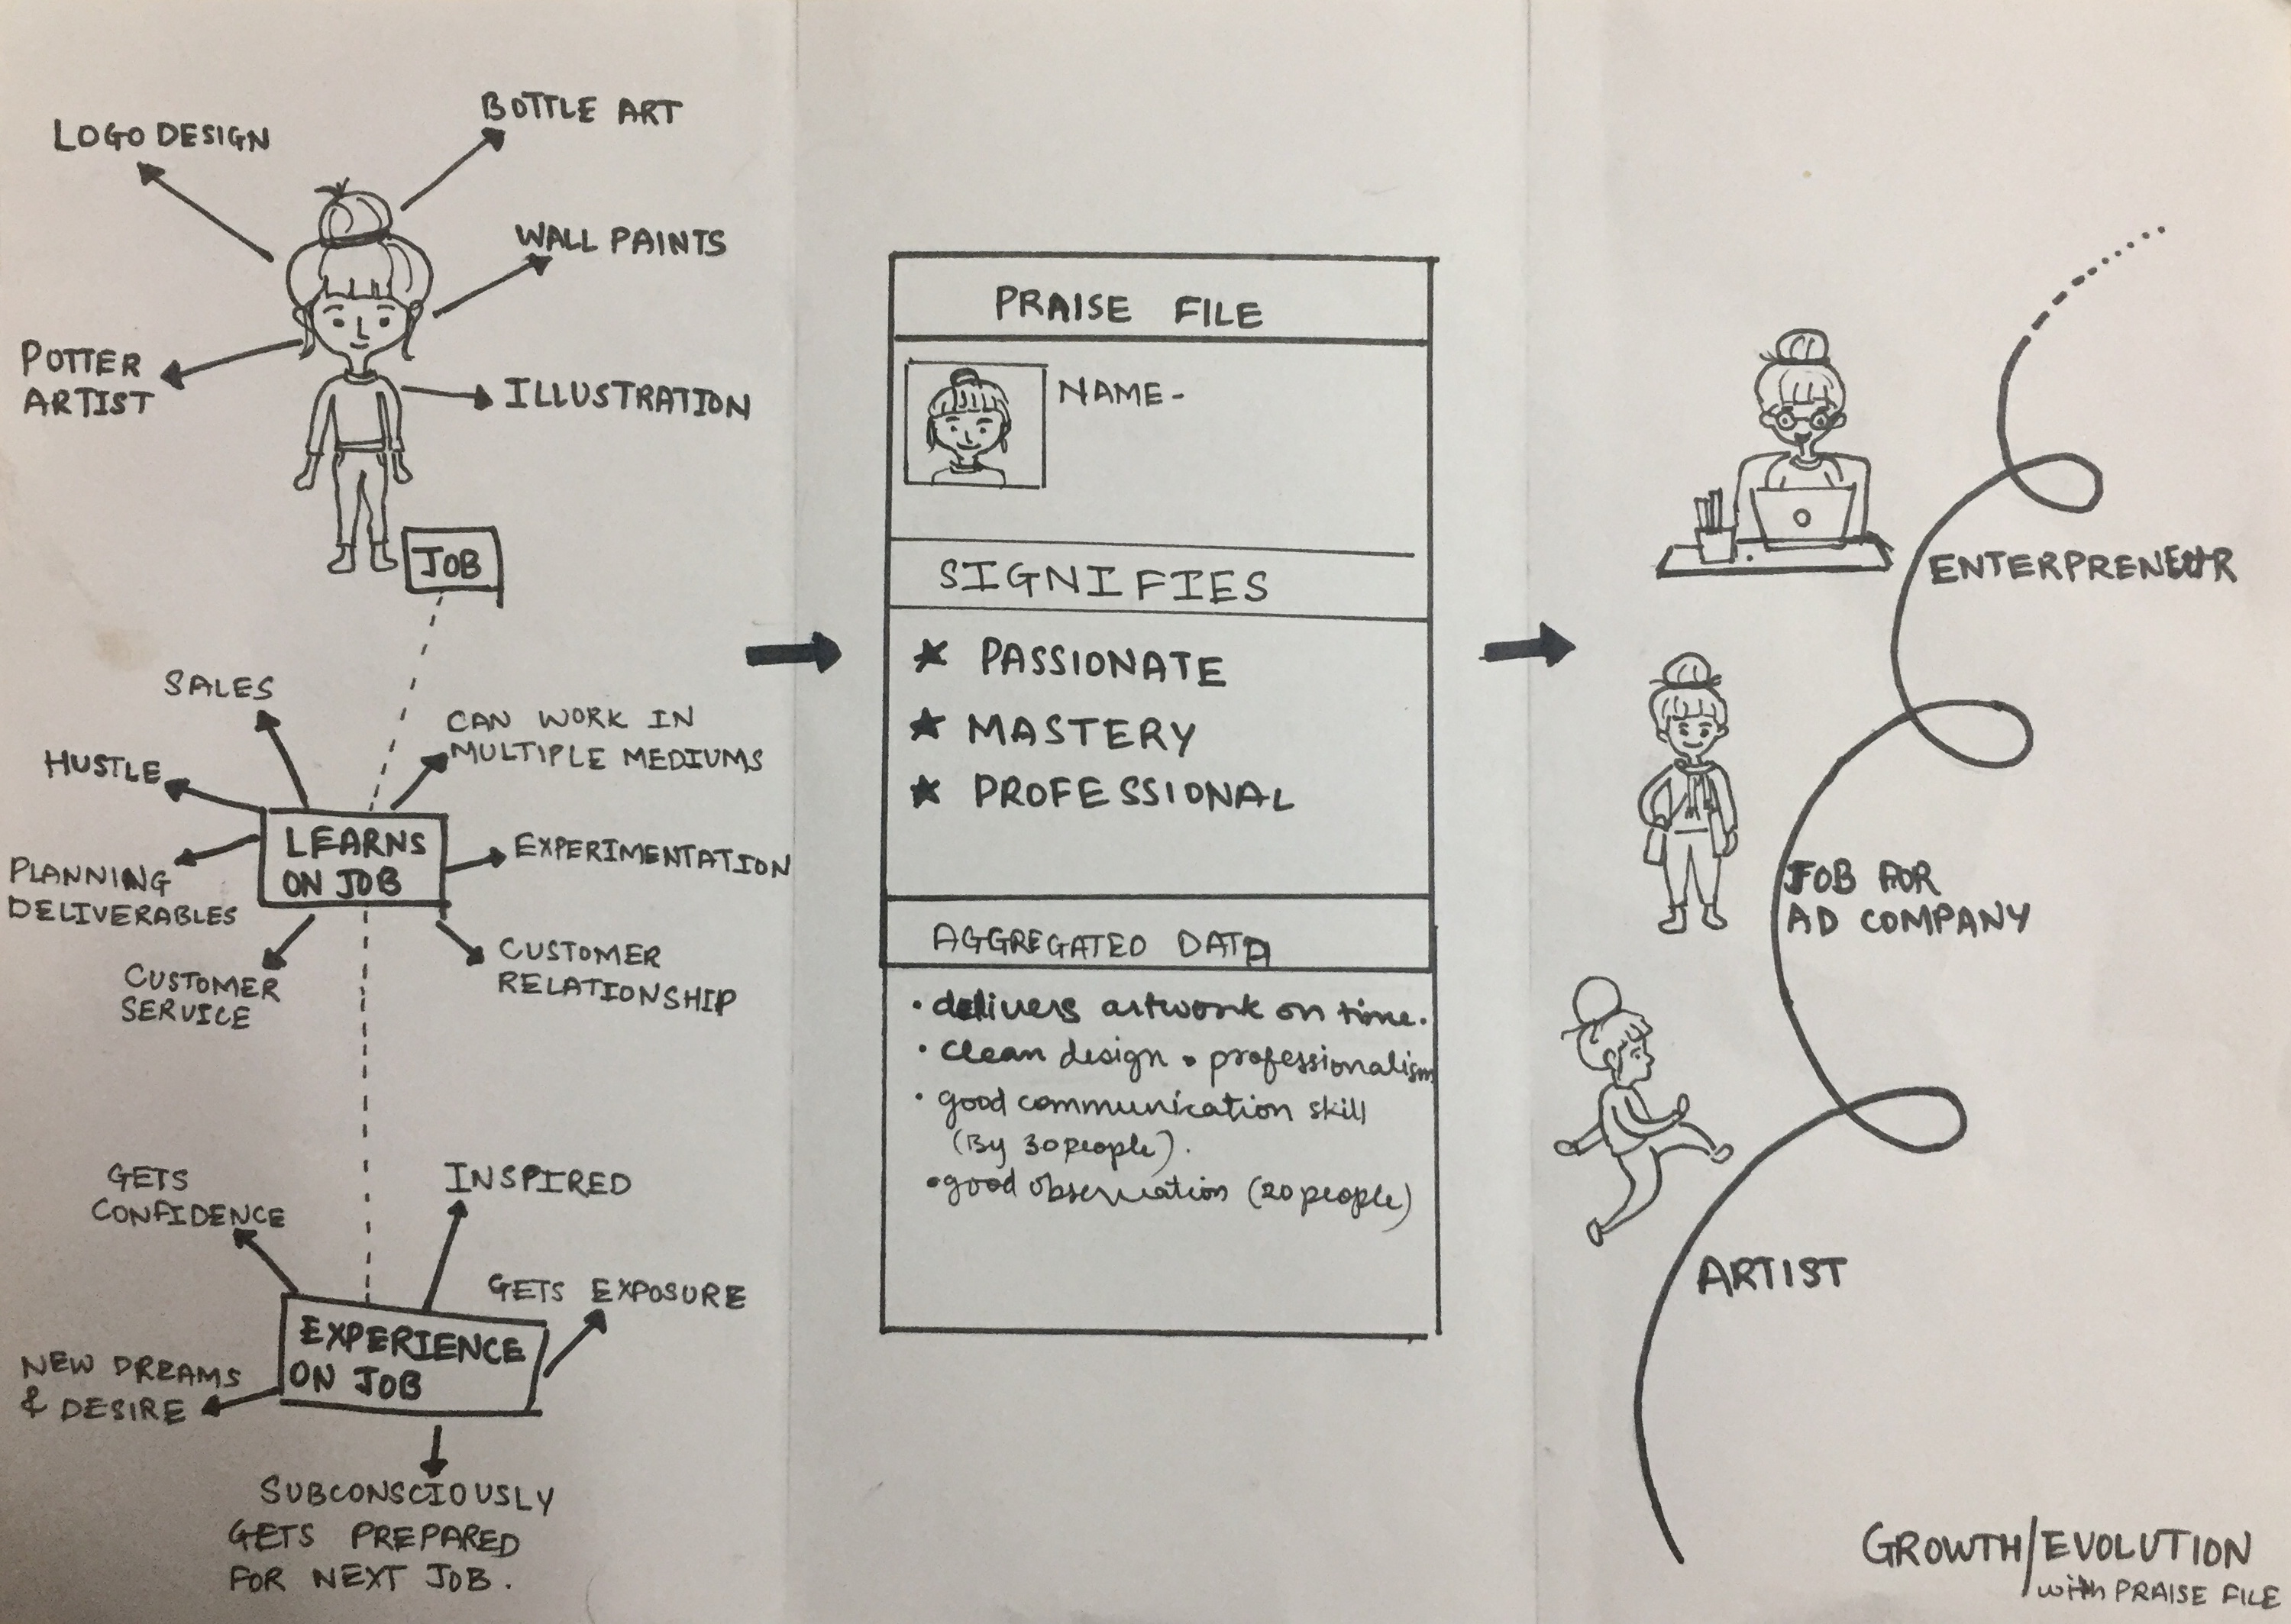 LOGO DESIGN
BOTTLE ART
WALL PAINTS
POTTER
ARTIST
ILLUSTRATION
JOB
SALES
CAN WORK IN
MULTIPLE MEDIUMS
HUSTLE
LEARNS
ON JOB
EXPERIMENTATION
PLANNING
DELIVERABLES
CUSTOMER
SERVICE
CUSTOMER
RELATIONSHIP
GETS
CONFIDENCE
INSPIRED
GETS EXPOSURE
EXPERIENCE
ON JOB
NEW DREAMS
& DESIRE
SUBCONSCIOUSLY
GETS PREPARED
FOR NEXT JOB.
PRAISE FILE
NAME-
SIGNIFIES
★ PASSIONATE
★ MASTERY
★ PROFESSIONAL
AGGREGATED DATA
• delivers artwork on time.
• clean design • professionalism
• good communication skill
(By 30 people).
• good observation (20 people)
ENTERPRENEUR
JOB FOR
AD COMPANY
ARTIST
GROWTH/EVOLUTION
with PRAISE FILE